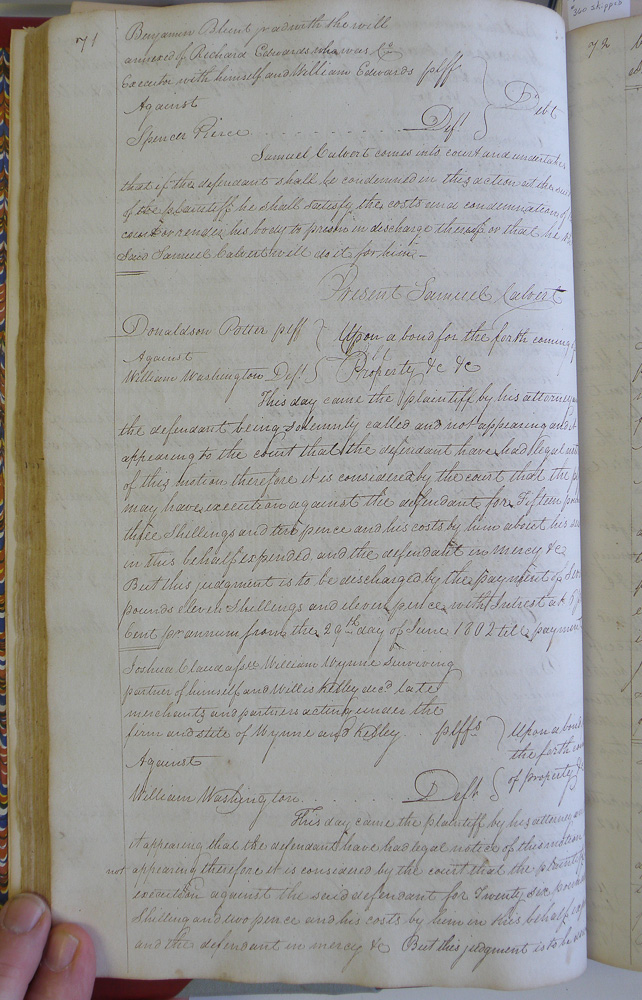 71
Benjamin Blunt with the will
annexed of Richard Edwards who was Co
Executor with himself and William Edwards plff
Against
Debt
Spencer Pierce Deft
Samuel Calvert comes into court and undertakes
that if the defendant shall be condemned in this action at the suit
of the plaintiff he shall satisfy the costs and condemnation of
court or render his body to prison in discharge thereof or that he
Said Samuel Calvert will do it for him
Present Samuel Calvert
Donaldson Potter plff Upon a bond for the forth coming of
Against
William Washington Deft Property &c &c
This day came the plaintiff by his attorney
the defendant being solemnly called and not appearing and it
appearing to the court that the defendant have had legal
of this motion therefore it is considered by the court that the
may have execution against the defendant for Fifteen
three Shillings and two pence and his costs by him about his
in this behalf expended and the defendant in mercy &c
But this judgment is to be discharged by the payment of
pounds eleven Shillings and eleven pence with Interest at
Cent pr annum from the 29th day of June 1802 till payment
Joshua Claud assee William Wynne surviving
partner of himself and Willis Kelley decd late
merchants and partners acting under the
firm and stile of Wynne and Kelley plffs
Upon a bond
the forth
Against
of property &c
William Washington Deft
This day came the plaintiff by his attorney
it appearing that the defendant have had legal notice of this motion
not appearing therefore it is considered by the court that the plaintiff
execution against the said defendant for Twenty six pounds
Shilling and two pence and his costs by him in this behalf
and the defendant in mercy &c But this judgment is to be
72